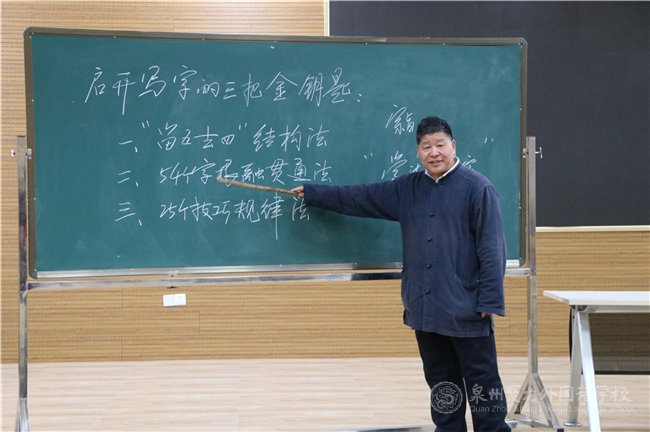 启开写字的三把金钥匙:
一、"畄五士四"结构法
二、54个字根融贯通法
三、25个技巧规律法
泉州 外国语学校
Quan Zho